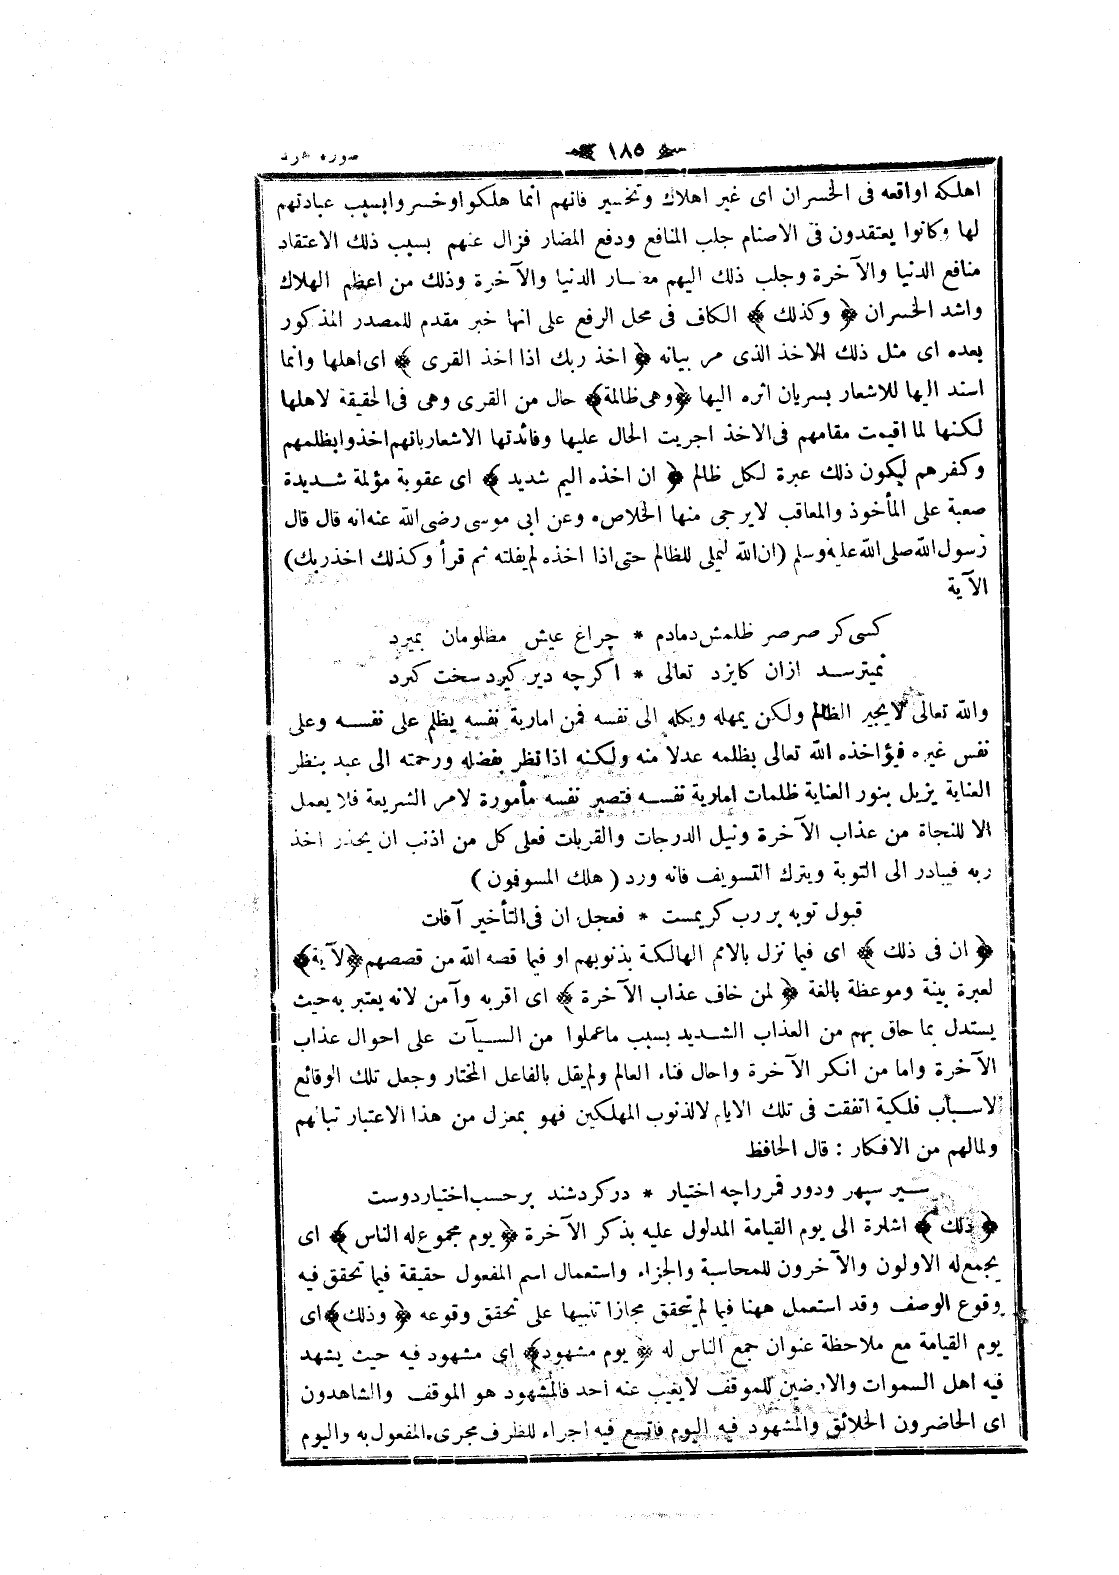 ١٨٥
سورة هود
اهلكه اواقعه فى الخسران اى غير اهلاك وتخسير فانهم انما هلكوا وخسروا بسبب عبادتهم
لها وكانوا يعتقدون فى الاصنام جلب المنافع ودفع المضار فزال عنهم بسبب ذلك الاعتقاد
منافع الدنيا والآخرة وجلب ذلك اليهم مضار الدنيا والآخرة وذلك من اعظم الهلاك
واشد الخسران ﴿ وكذلك ﴾ الكاف فى محل الرفع على انها خبر مقدم للمصدر المذكور
بعده اى مثل ذلك الاخذ الذى مر بيانه ﴿ اخذ ربك اذا اخذ القرى ﴾ اى اهلها وانما
اسند اليها للاشعار بسريان اثره اليها ﴿وهى ظالمة﴾ حال من القرى وهى فى الحقيقة لاهلها
لكنها لما اقيمت مقامهم فى الاخذ اجريت الحال عليها وفائدتها الاشعار بانهم اخذوا بظلمهم
وكفرهم ليكون ذلك عبرة لكل ظالم ﴿ ان اخذه اليم شديد ﴾ اى عقوبة مؤلمة شديدة
صعبة على المأخوذ والمعاقب لايرجى منها الخلاص٠ وعن ابى موسى رضى الله عنه انه قال قال
رسول الله صلى الله عليه وسلم (ان الله ليملى للظالم حتى اذا اخذه لم يفلته ثم قرأ وكذلك اخذ ربك)
الآية
كسى كر صرصر ظلمش دمادم * چراغ عيش مظلومان بميرد
نميترسد ازان كايزد تعالى * اكرچه دير كيرد سخت كيرد
والله تعالى لايجير الظالم ولكن يمهله ويكله الى نفسه فمن امارية نفسه يظلم على نفسه وعلى
نفس غيره فيؤاخذه الله تعالى بظلمه عدلا منه ولكنه اذا نظر بفضله ورحمته الى عبد بنظر
العناية يزيل بنور العناية ظلمات امارية نفسه فتصير نفسه مأمورة لامر الشريعة فلا يعمل
الا للنجاة من عذاب الآخرة ونيل الدرجات والقربات فعلى كل من اذنب ان يحذر اخذ
ربه فيبادر الى التوبة ويترك التسويف فانه ورد ( هلك المسوفون )
قبول توبه بر رب كريمست * فعجل ان فى التأخير آفات
﴿ ان فى ذلك ﴾ اى فيما نزل بالامم الهالكة بذنوبهم او فيما قصه الله من قصصهم ﴿لآية﴾
لعبرة بينة وموعظة بالغة ﴿ لمن خاف عذاب الآخرة ﴾ اى اقر به وآمن لانه يعتبر به حيث
يستدل بما حاق بهم من العذاب الشديد بسبب ما عملوا من السيآت على احوال عذاب
الآخرة واما من انكر الآخرة واحال فناء العالم ولم يقل بالفاعل المختار وجعل تلك الوقائع
لاسباب فلكية اتفقت فى تلك الايام لا لذنوب المهلكين فهو بمعزل من هذا الاعتبار تبا لهم
ولما لهم من الافكار : قال الحافظ
سير سپهر ودور قمر راچه اختيار * در كردشند بر حسب اختيار دوست
﴿ ذلك ﴾ اشارة الى يوم القيامة المدلول عليه بذكر الآخرة ﴿ يوم مجموع له الناس ﴾ اى
يجمع له الاولون والآخرون للمحاسبة والجزاء واستعمال اسم المفعول حقيقة فيما تحقق فيه
وقوع الوصف وقد استعمل ههنا فيما لم تحقق مجازا تنبيها على تحقق وقوعه ﴿ وذلك ﴾ اى
يوم القيامة مع ملاحظة عنوان جمع الناس له ﴿ يوم مشهود ﴾ اى مشهود فيه حيث يشهد
فيه اهل السموات والارضين للموقف لايغيب عنه احد فالمشهود هو الموقف والشاهدون
اى الحاضرون الخلائق والمشهود فيه اليوم فاتسع فيه اجراء للظرف مجرى المفعول به واليوم